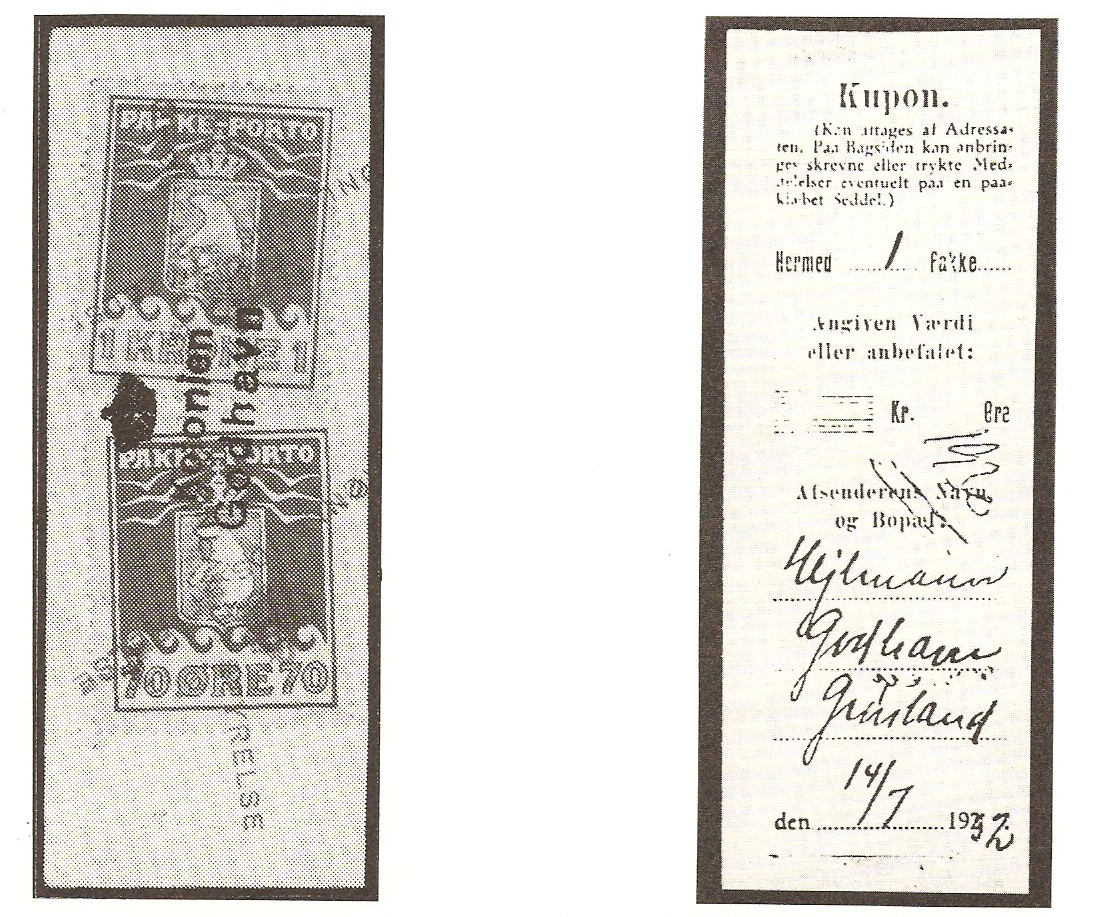 PAKKE-PORTO
1 KRONE 1
Kolonien
Godhavn
PAKKE-PORTO
70 ØRE 70
YRELSE
Kupon.
(Kan aftages af Adressa-
ten. Paa Bagsiden kan anbrin-
ges skrevne eller trykte Med-
delelser eventuelt paa en paa-
klæbet Seddel.)
Hermed 1 Pakke
Angiven Værdi
eller anbefalet:
Kr. Øre
Afsenderens Navn
og Bopæl:
Godhavn
Grønland
14/7
den 1932